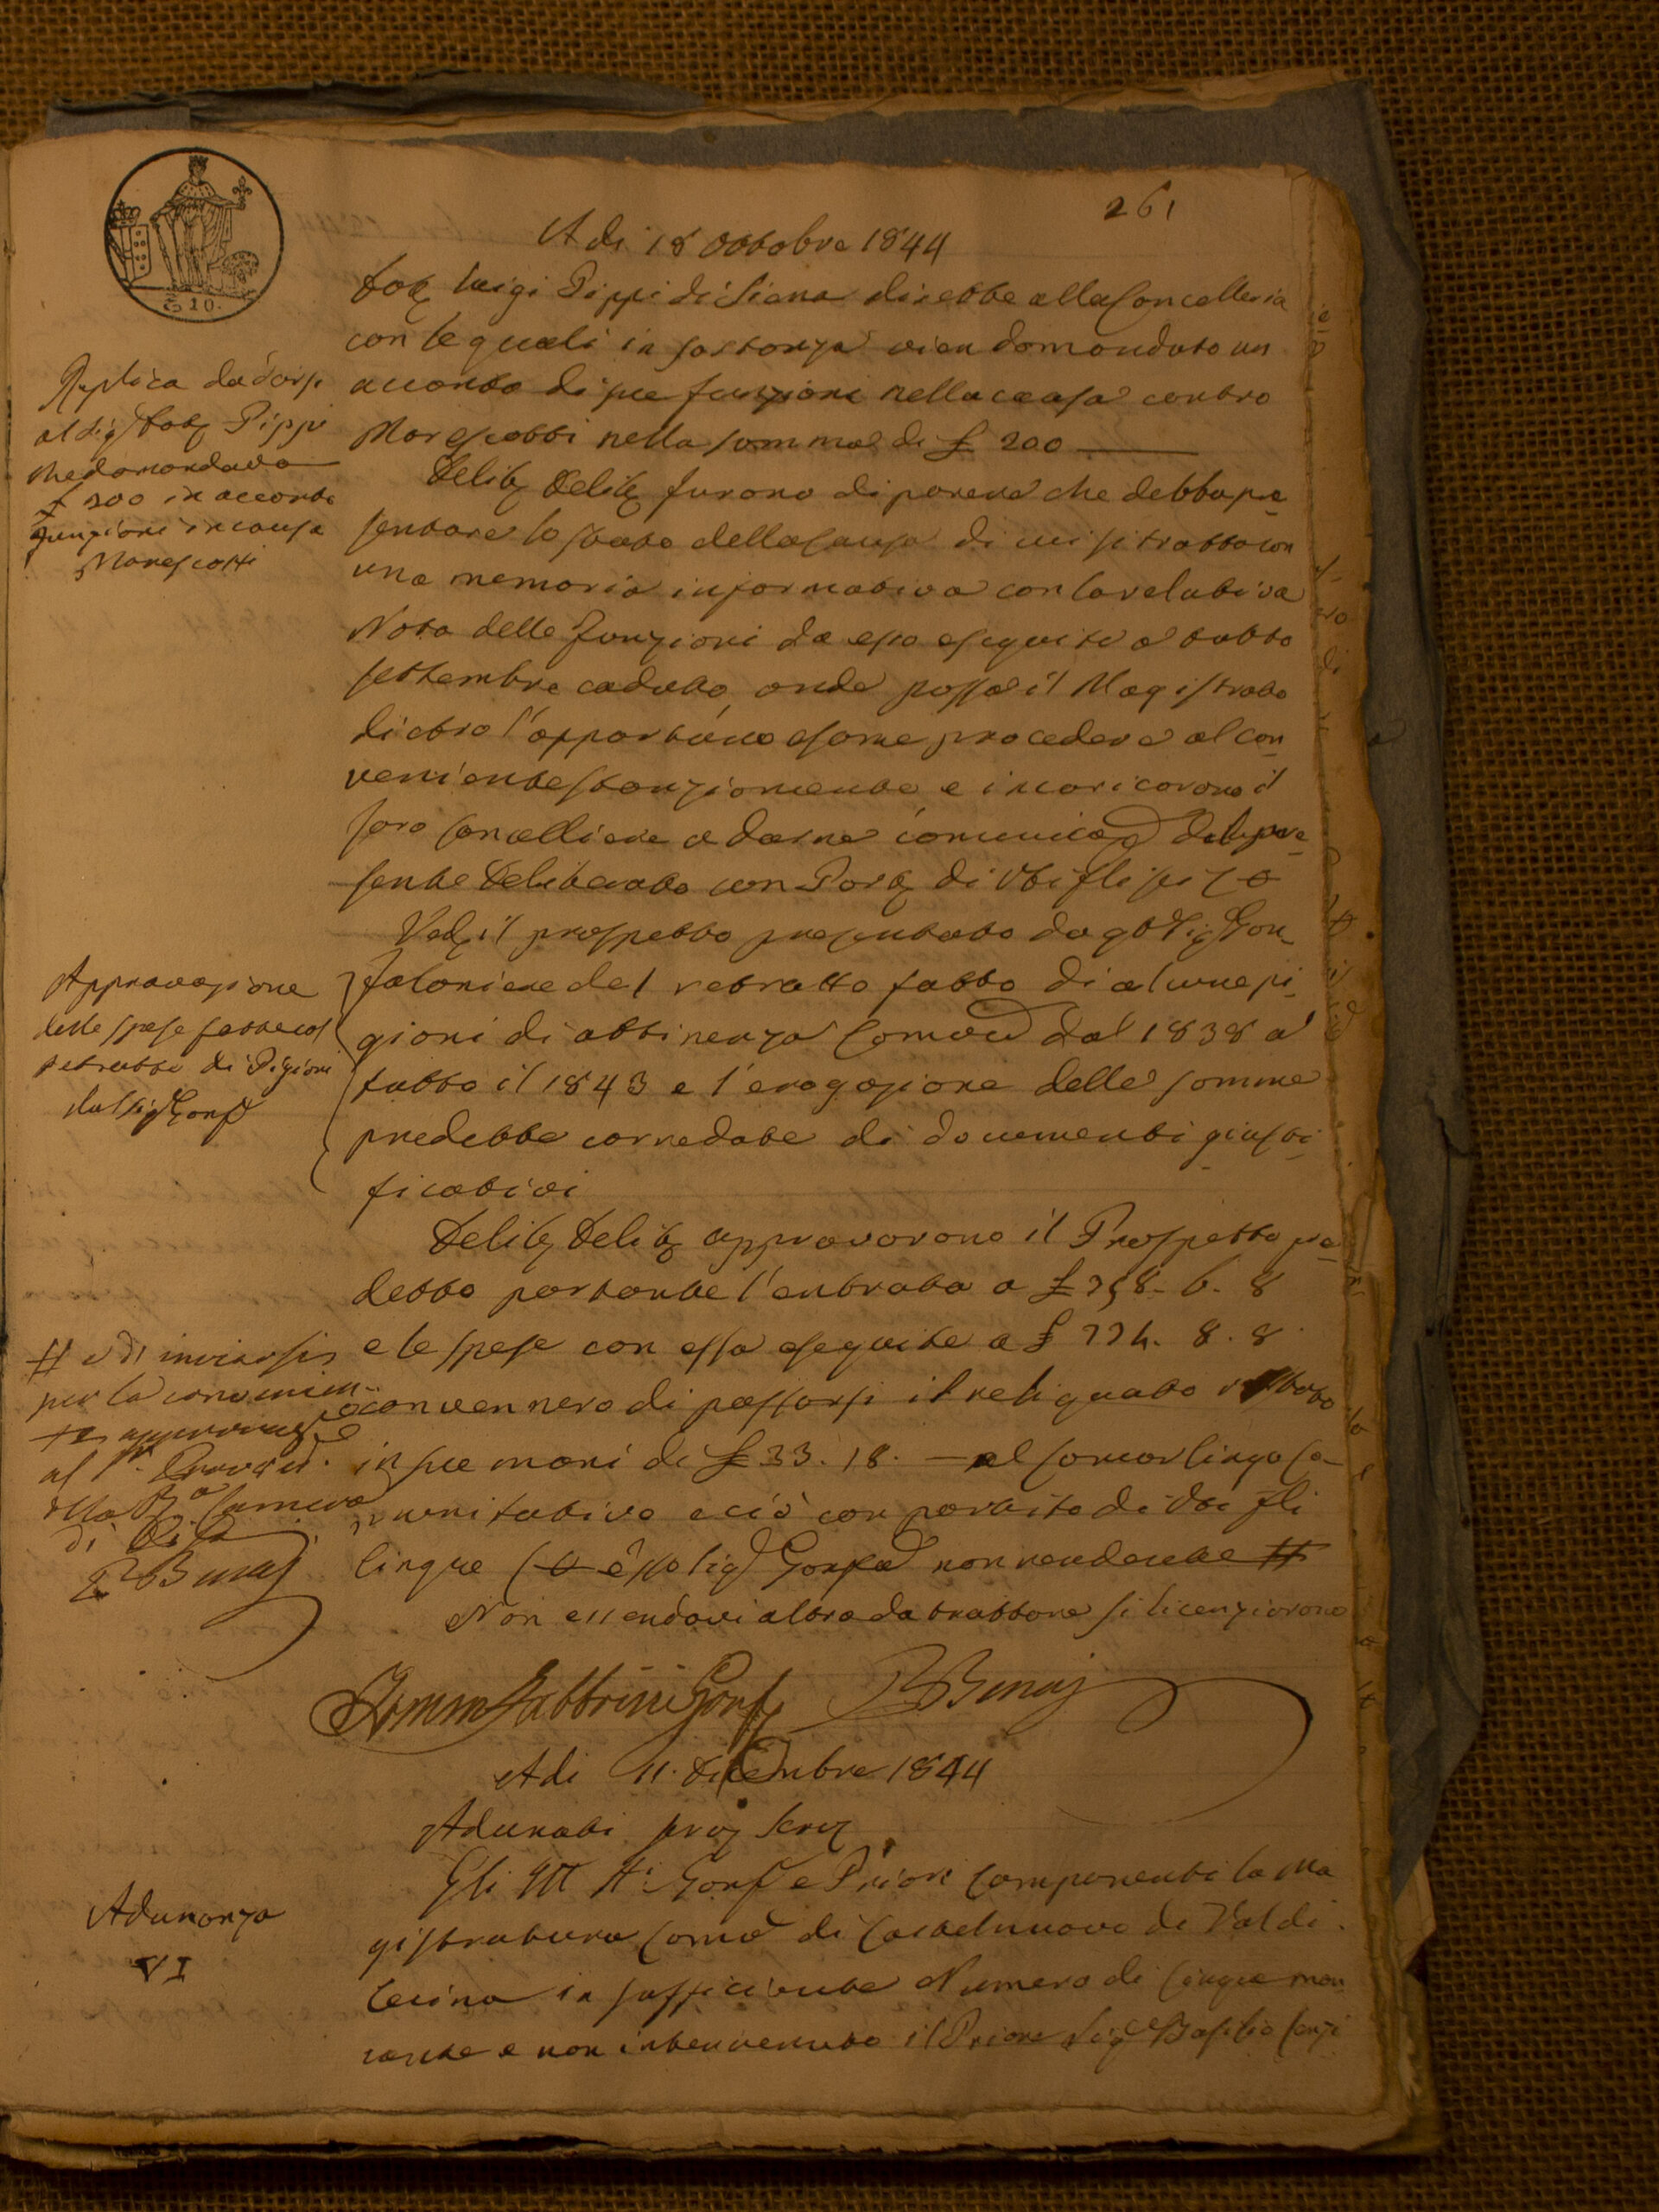 261
10.
A di 18 Ottobre 1844
Dott. Luigi Pippi di Siena dirette alla Cancelleria
con le quali in sostanza vien domandato un
acconto di sue funzioni nella causa contro
Marescotti nella somma di £ 200
Replica da darsi
al Sig. Dott. Pippi
che domandava
£ 200 in acconto
funzioni in causa
Marescotti
Delib. Delib. furono di parere che debba pre
sentare lo stato della causa di cui si tratta con
una memoria informativa con la relativa
Nota delle funzioni da esso eseguite a tutto
settembre caduto, onde possa il Magistrato
dietro l'opportuno esame procedere al con
veniente stanziamento e incaricarono il
loro Cancelliere a darne comunicaz. del pre
sente Deliberato con Part. di Voti fli sei
Ved. il prospetto presentato da q.to Sig. Gon
faloniere del retratto fatto di alcune pi
gioni di attinenza Comva dal 1838 a
tutto il 1843 e l'erogazione delle somme
predette corredate di documenti giusti
ficativi
Approvazione
delle spese fatte col
retratto di Pigioni
dal Sig. Gonf.
Delib. Delib. approvarono il Prospetto pre
detto portante l'entrata a £ 258. 6. 8
e le spese con essa eseguite a £ 224. 8. 8
convennero di passarsi il reliquato restato
in sue mani di £ 33. 18. — al Camarlingo Co
munitativo e ciò con partito di Voti fli
cinque esso Sig. Gonfe non rendente #
# e di inviarsi
per la convenien
te approvazione
al Sr. Provved.
della Ra. Camera
di Pisa
Non essendovi altro da trattare si licenziarono
A di 11. Dicembre 1844
Adunati serv. serv.
Gli Ill. SSi Gonf. e Priori componenti la Ma
gistratura Comva di Castelnuovo di Val di
Cecina in sufficiente Numero di Cinque man
cante e non intervenuto il Priore Sig. Basilio
Adunanza
VI